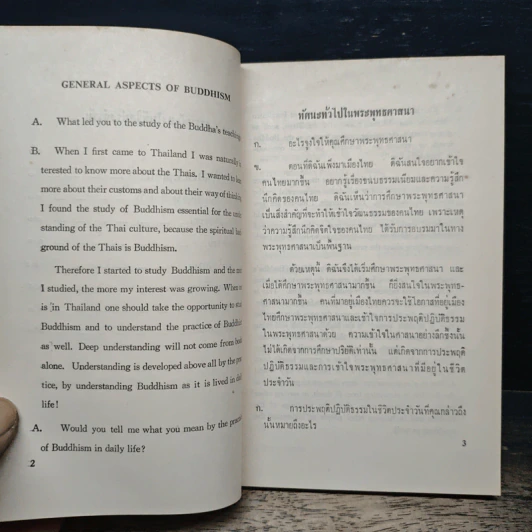 GENERAL ASPECTS OF BUDDHISM
A. What led you to the study of the Buddha's
B. When I first came to Thailand I was
terested to know more about the Thais. I wanted to
more about their customs and about their way of
I found the study of Buddhism essential for the
standing of the Thai culture, because the spiritual
ground of the Thais is Buddhism.
Therefore I started to study Buddhism and the
I studied, the more my interest was growing. When
is in Thailand one should take the opportunity to
Buddhism and to understand the practice of
as well. Deep understanding will not come from
alone. Understanding is developed above all by the
tice, by understanding Buddhism as it is lived in
life!
A. Would you tell me what you mean by the
of Buddhism in daily life?
2
ทัศนะทั่วไปในพระพุทธศาสนา
ก. อะไรจูงใจให้คุณศึกษาพระพุทธศาสนา
ข. ตอนที่ดิฉันเพิ่งมาเมืองไทย ดิฉันสนใจอยากเข้าใจ
คนไทยมากขึ้น อยากรู้เรื่องขนบธรรมเนียมและความรู้สึก
นึกคิดของคนไทย ดิฉันเห็นว่าการศึกษาพระพุทธศาสนา
เป็นสิ่งสำคัญที่จะทำให้เข้าใจวัฒนธรรมของคนไทย เพราะเหตุ
ว่าความรู้สึกนึกคิดจิตใจของคนไทย ได้รับการอบรมมาในทาง
พระพุทธศาสนาเป็นพื้นฐาน
ด้วยเหตุนี้ ดิฉันจึงได้เริ่มศึกษาพระพุทธศาสนา และ
เมื่อได้ศึกษาพระพุทธศาสนามากขึ้น ก็ยิ่งสนใจในพระพุทธ-
ศาสนามากขึ้น คนที่มาอยู่เมืองไทยควรจะใช้โอกาสที่อยู่เมือง
ไทยศึกษาพระพุทธศาสนาและเข้าใจการประพฤติปฏิบัติธรรม
ในพระพุทธศาสนาด้วย ความเข้าใจในศาสนาอย่างลึกซึ้งนั้น
ไม่ได้เกิดจากการศึกษาปริยัติเท่านั้น แต่เกิดจากการประพฤติ
ปฏิบัติธรรมและการเข้าใจพระพุทธศาสนาที่มีอยู่ในชีวิต
ประจำวัน
ก. การประพฤติปฏิบัติธรรมในชีวิตประจำวันที่คุณกล่าวถึง
นั้นหมายถึงอะไร
3